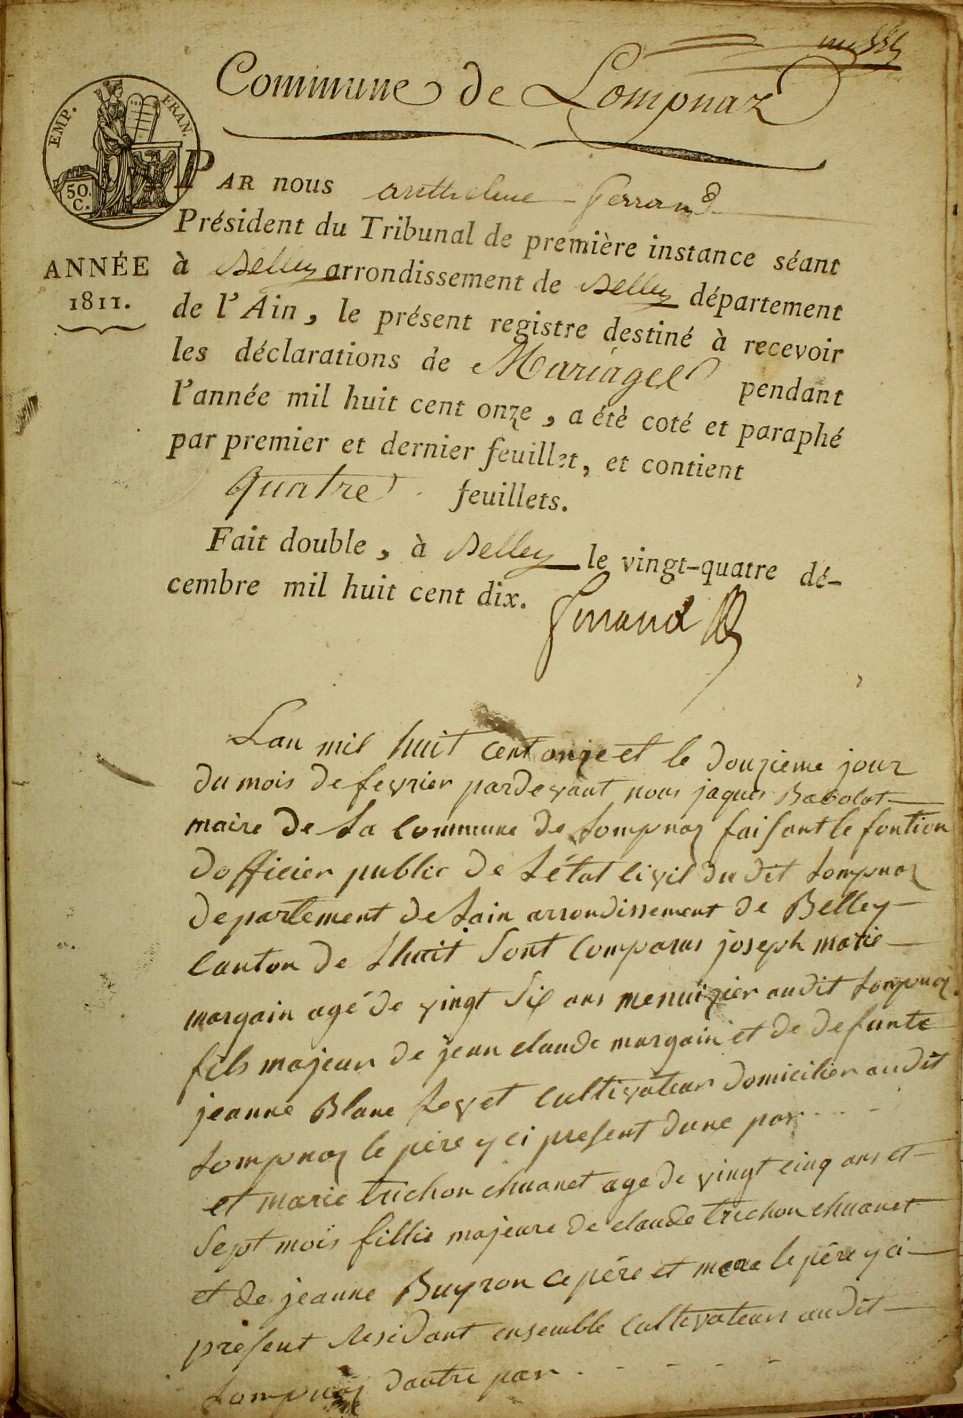 Commune de Lompnaz
EMP. FRAN.
50.
C.
ANNÉE
1811.
PAR nous anthelme ferrand
Président du Tribunal de première instance séant
à Belley arrondissement de Belley département
de l'Ain, le présent registre destiné à recevoir
les déclarations de Mariages pendant
l'année mil huit cent onze, a été coté et paraphé
par premier et dernier feuillet, et contient
quatre feuillets.
Fait double, à Belley le vingt-quatre dé-
cembre mil huit cent dix.
ferrand
Lan mil huit cent onze et le douzieme jour
du mois de fevrier pardevant nous jaques Babolat
maire de la commune de Lompnaz faisant le fontion
dofficier public de Létat civil du dit Lompnaz
departement de Lain arrondissement de Belley
Canton de Lhuit Sont comparus joseph marie
margain agé de vingt Six ans menuizier au dit Lompnaz
fils majeur de jean claude margain et de defunte
jeanne Blanc Revet cultivateur domicilier au dit
Lompnaz le père y ci present dune par
et marie trichon chuanet age de vingt cinq ans et
Sept mois fillie majeure de claude trichon chuanet
et de jeanne Buyron ce père et mere le père y ci
présent Residant ensemble cultivateurs au dit
Lompnaz dautre par